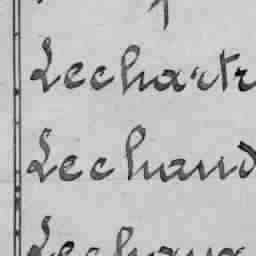 Lechartr
Lechaud